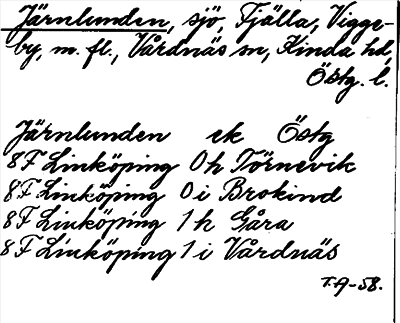 Järnlunden, sjö, Fjälla, Vigge-
by, m. fl., Vårdnäs sn, Kinda hd,
Östg. l.
Järnlunden ek Östg
8F Linköping 0h Törnevik
8F Linköping 0i Brokind
8F Linköping 1h Gåra
8F Linköping 1i Vårdnäs
T.A-58.